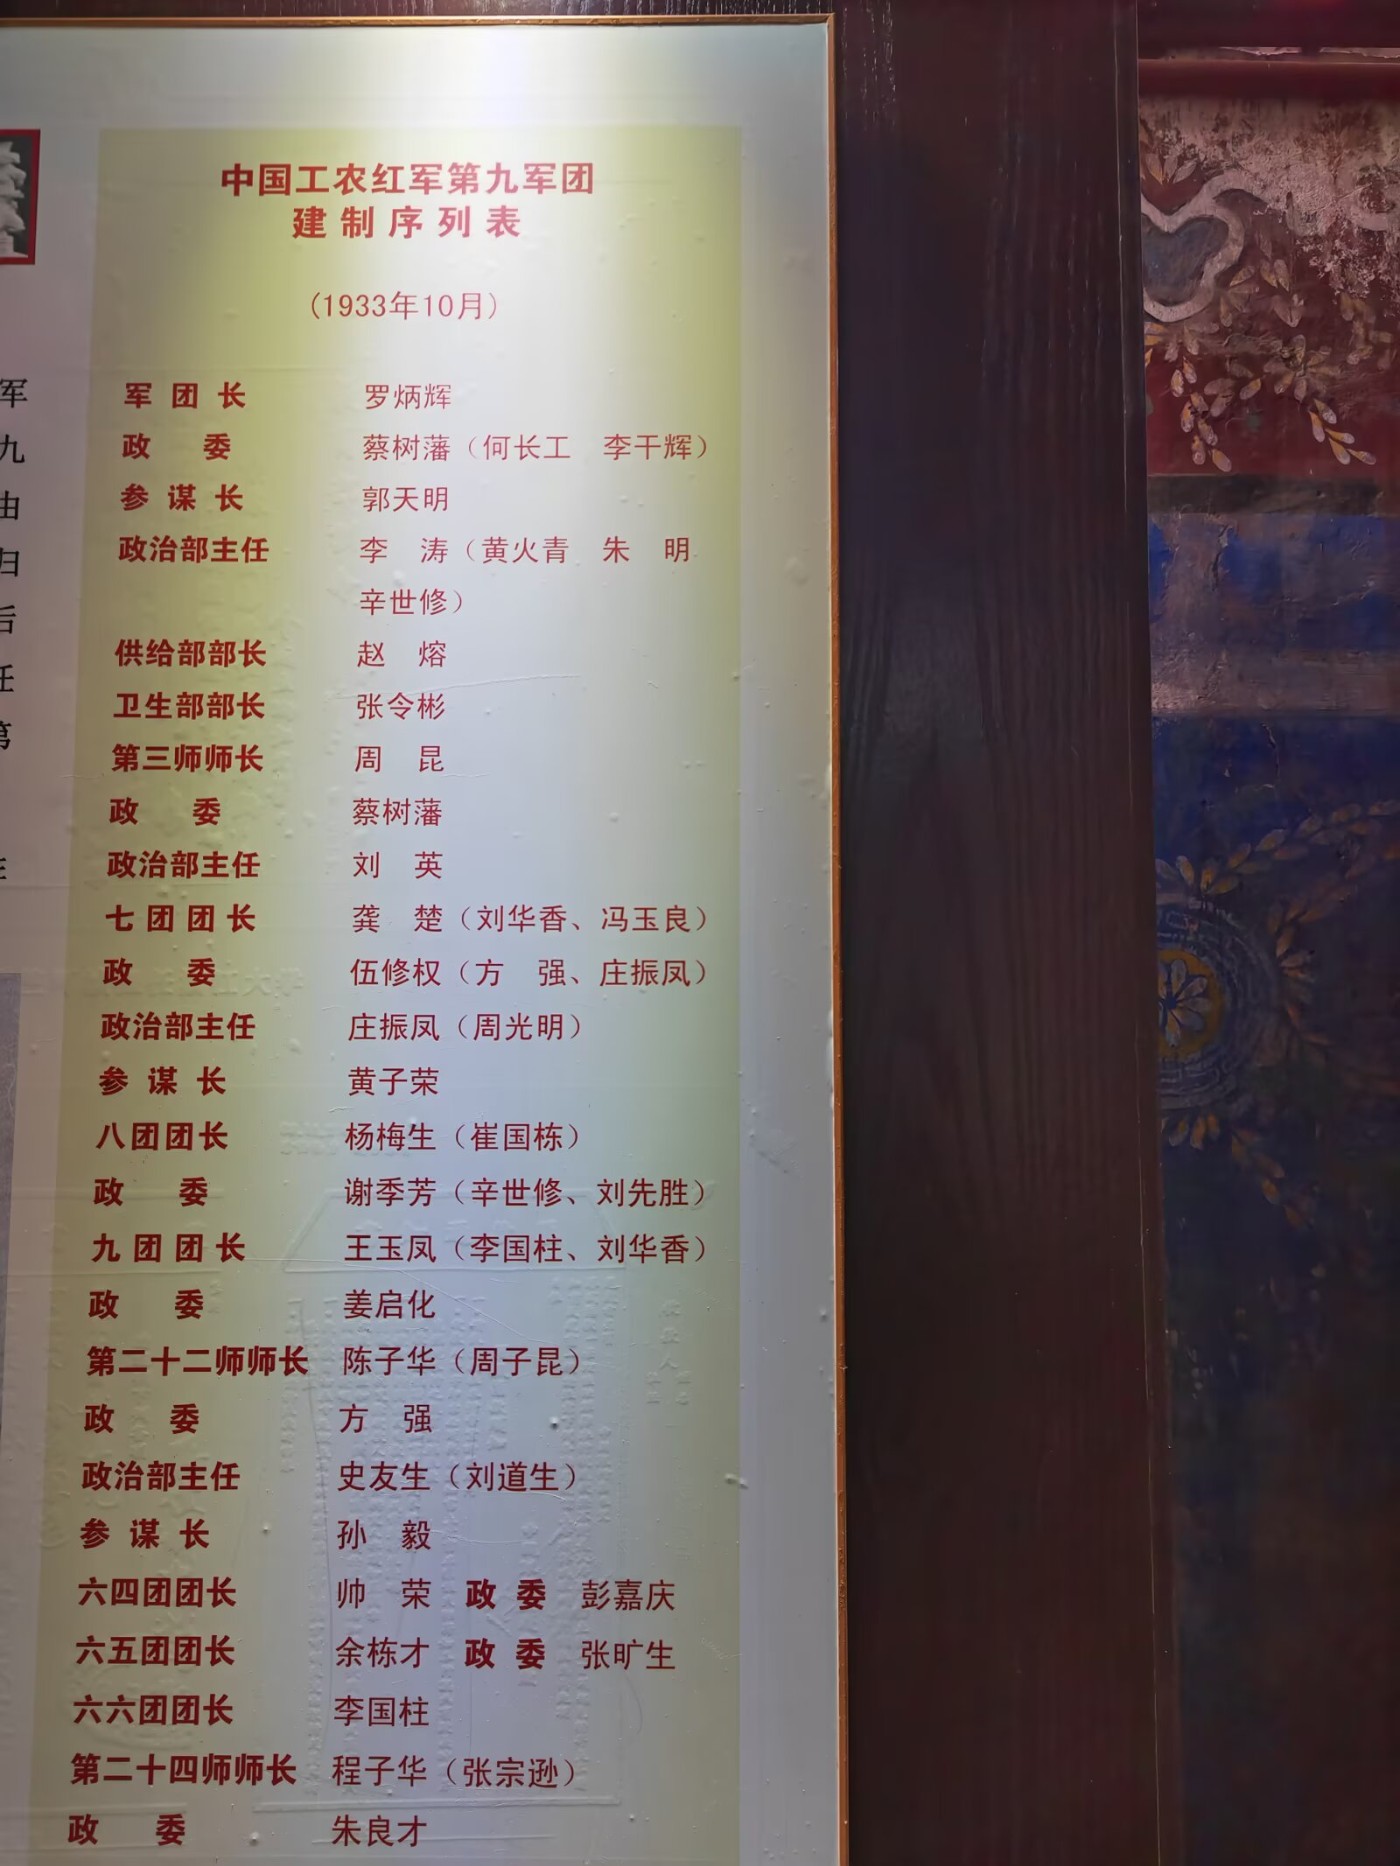 中国工农红军第九军团
建制序列表
(1933年10月)
军团长 罗炳辉
政委 蔡树藩（何长工 李干辉）
参谋长 郭天明
政治部主任 李涛（黄火青 朱明
辛世修）
供给部部长 赵熔
卫生部部长 张令彬
第三师师长 周昆
政委 蔡树藩
政治部主任 刘英
七团团长 龚楚（刘华香、冯玉良）
政委 伍修权（方强、庄振凤）
政治部主任 庄振凤（周光明）
参谋长 黄子荣
八团团长 杨梅生（崔国栋）
政委 谢季芳（辛世修、刘先胜）
九团团长 王玉凤（李国柱、刘华香）
政委 姜启化
第二十二师师长 陈子华（周子昆）
政委 方强
政治部主任 史友生（刘道生）
参谋长 孙毅
六四团团长 帅荣 政委 彭嘉庆
六五团团长 余栋才 政委 张旷生
六六团团长 李国柱
第二十四师师长 程子华（张宗逊）
政委 朱良才
军
九
由
归
后
任
第